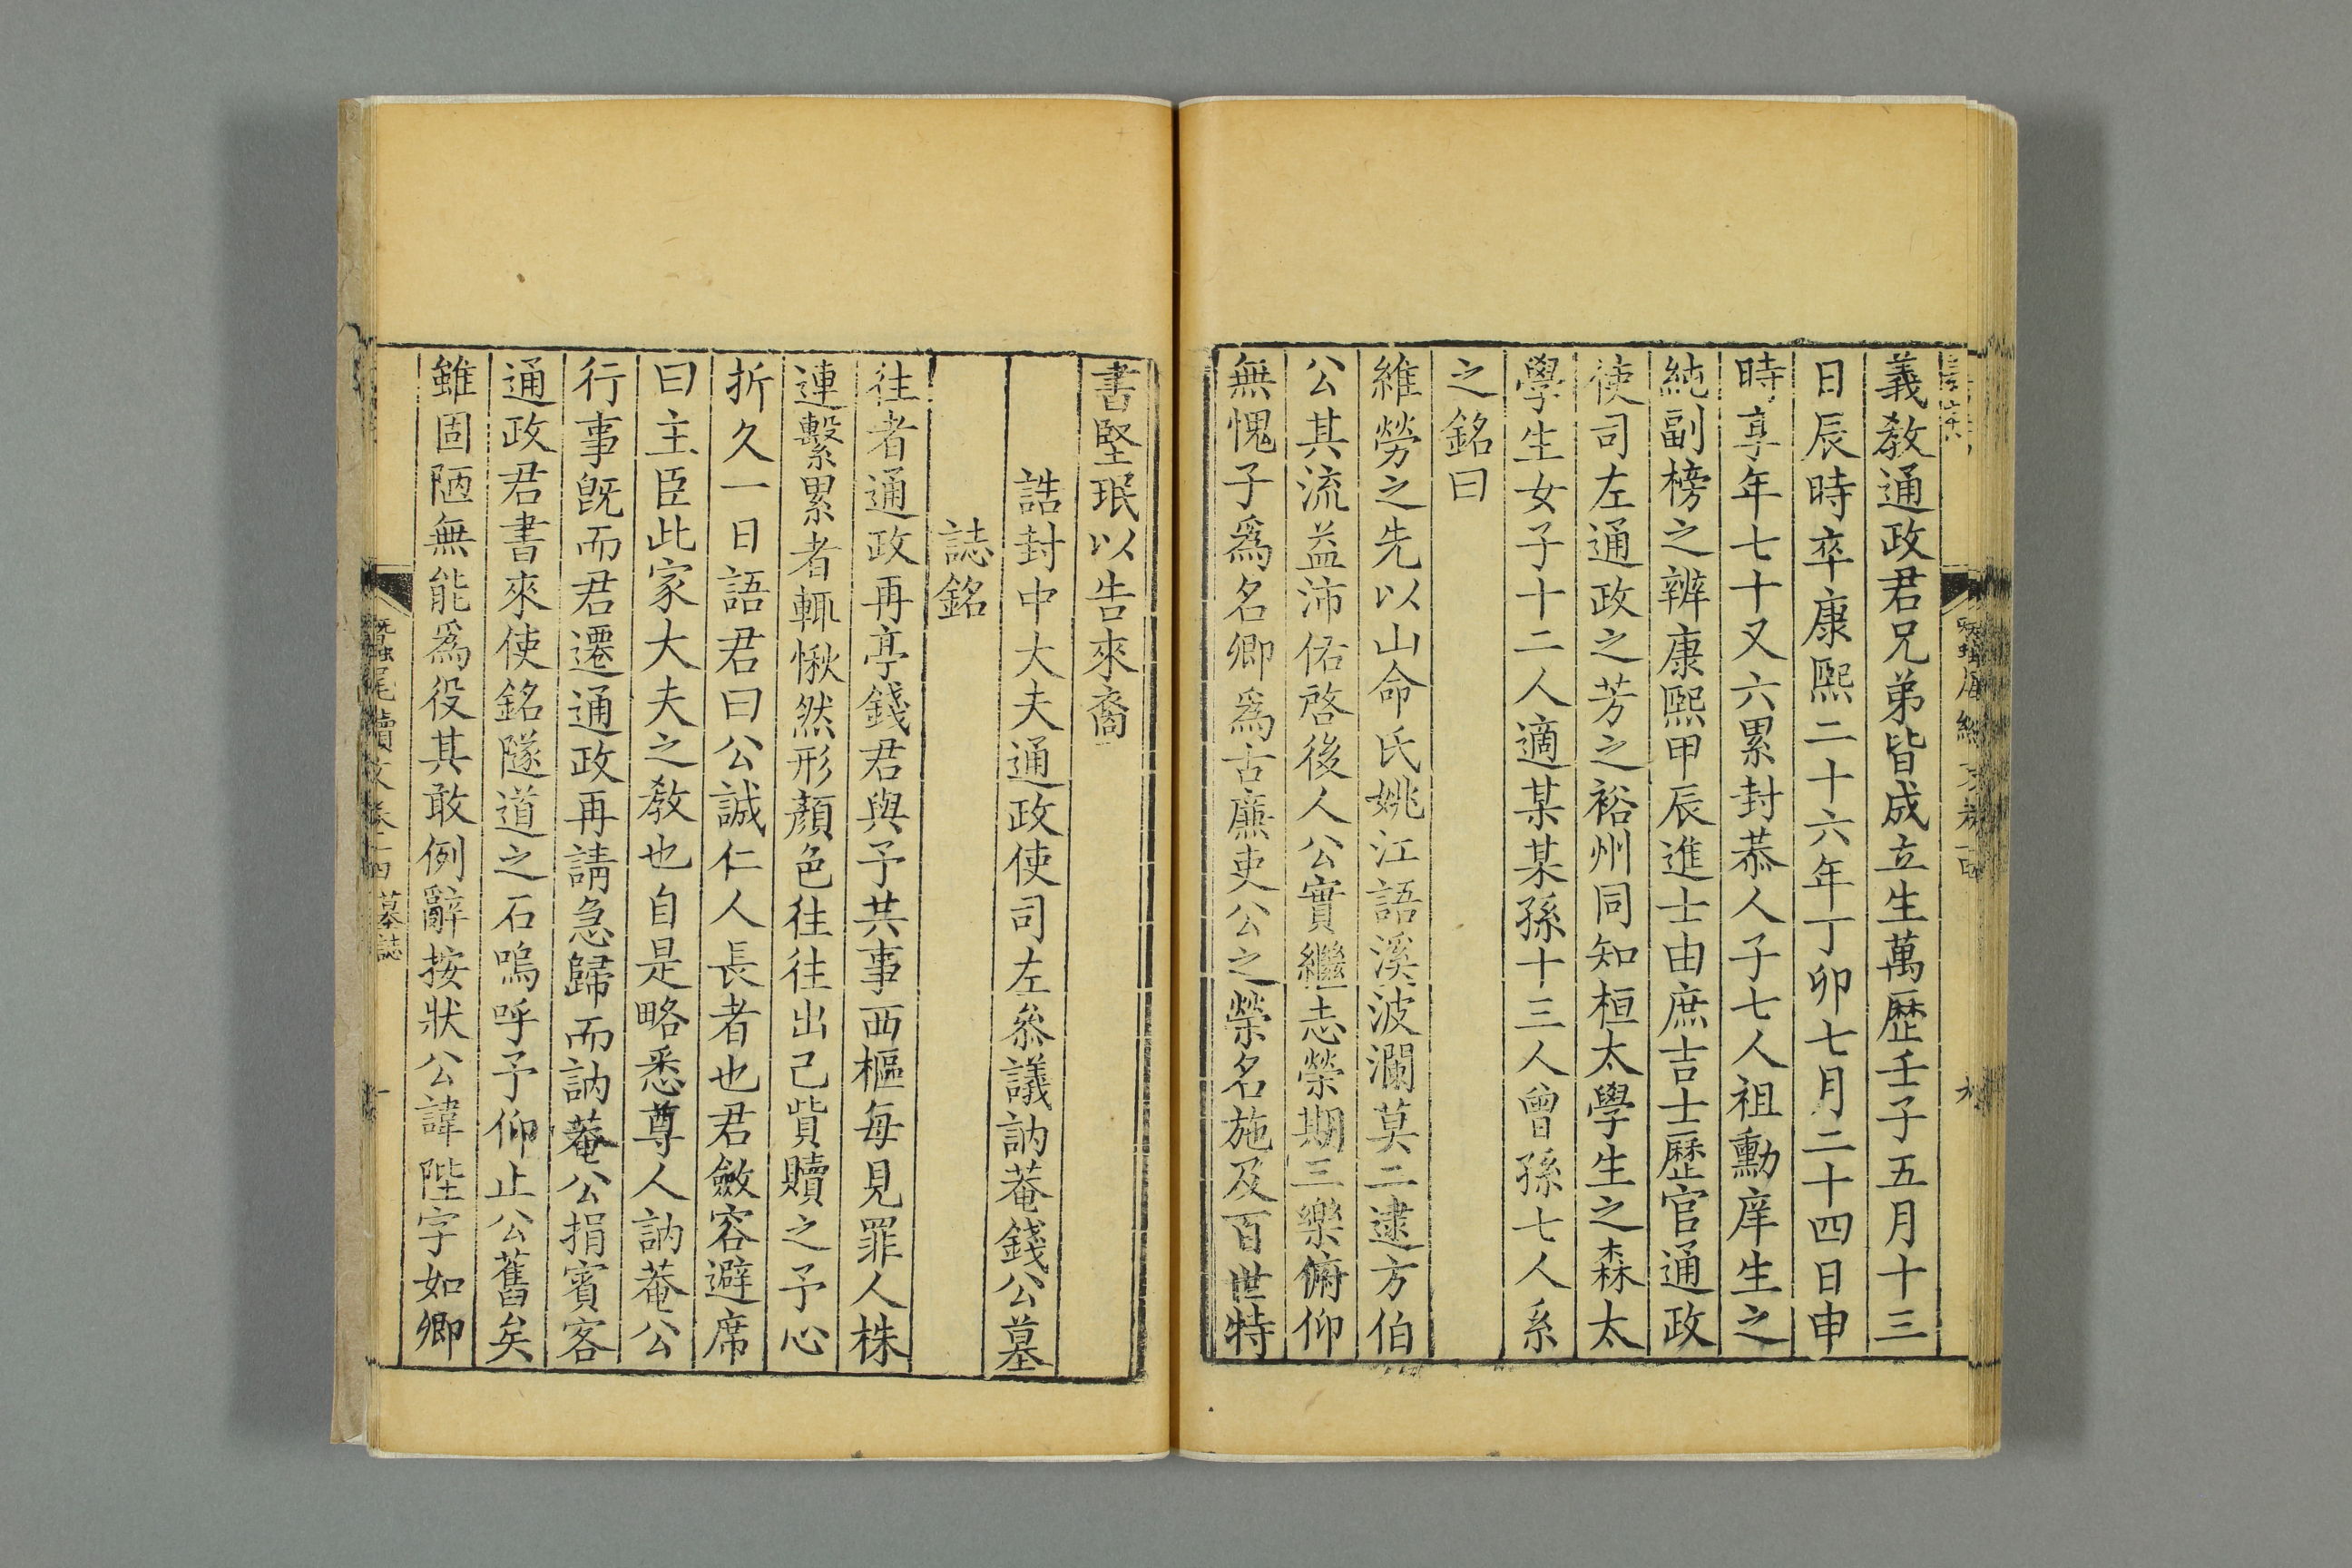 義敎通政君兄弟皆成立生萬歷壬子五月十三
日辰時卒康熙二十六年丁卯七月二十四日申
時享年七十又六累封恭人子七人祖勳庠生之
純副榜之辨康熙甲辰進士由庶吉士歷官通政
使司左通政之芳之裕州同知桓太學生之森太
學生女子十二人適某某孫十三人曾孫七人系
之銘曰
維勞之先以山命氏姚江語溪波瀾莫二逮方伯
公其流益沛佑啓後人公實繼志榮期三樂俯仰
無愧子爲名卿爲古廉吏公之榮名施及百世特
書堅珉以告來裔
誥封中大夫通政使司左叅議訥菴錢公墓
誌銘
往者通政再亭錢君與予共事西樞每見罪人株
連繫累者輒愀然形顏色往往出己貲贖之予心
折久一日語君曰公誠仁人長者也君斂容避席
曰主臣此家大夫之敎也自是略悉尊人訥菴公
行事旣而君遷通政再請急歸而訥菴公捐賓客
通政君書來使銘隧道之石嗚呼予仰止公舊矣
雖固陋無能爲役其敢例辭按狀公諱陛字如卿
蠶尾續文卷十四 墓誌